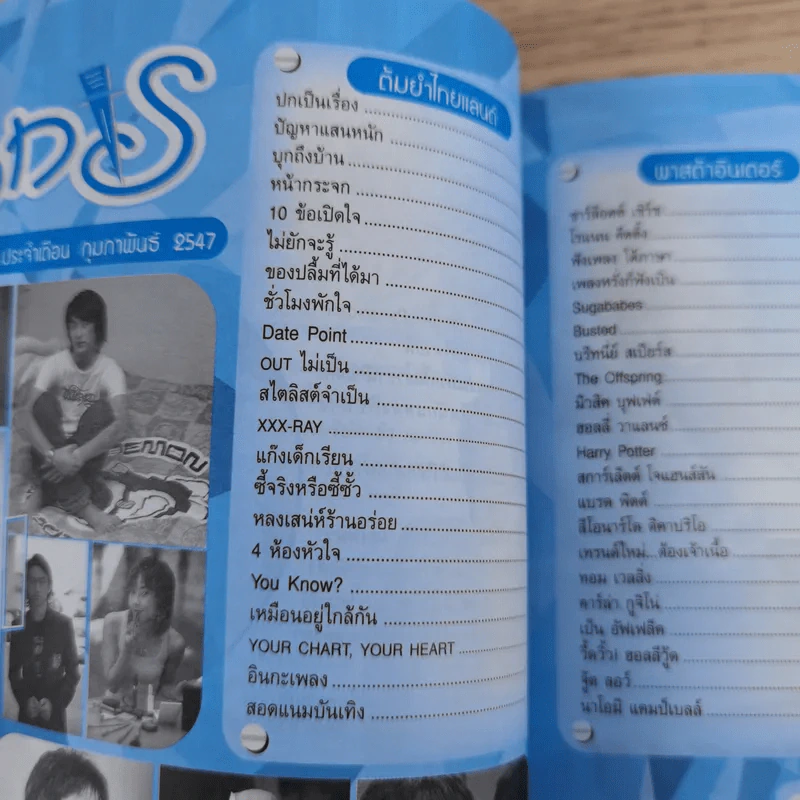 ประจำเดือน กุมภาพันธ์ 2547
ต้มยำไทยแลนด์
ปกเป็นเรื่อง
ปัญหาแสนหนัก
บุกถึงบ้าน
หน้ากระจก
10 ข้อเปิดใจ
ไม่ยักจะรู้
ของปลื้มที่ได้มา
ชั่วโมงพักใจ
Date Point
OUT ไม่เป็น
สไตลิสต์จำเป็น
XXX-RAY
แก๊งเด็กเรียน
ซี้จริงหรือซี้ซั้ว
หลงเสน่ห์ร้านอร่อย
4 ห้องหัวใจ
You Know?
เหมือนอยู่ใกล้กัน
YOUR CHART, YOUR HEART
อินกะเพลง
สอดแนมบันเทิง
DEMON
พาสต้าอินเตอร์
ชาร์ล็อตต์ เชิร์ช
โรแนน คีตติ้ง
ฟังเพลง ได้ภาษา
เพลงหรั่งก็ฟังเป็น
Sugababes
Busted
บริทนีย์ สเปียร์ส
The Offspring
มิวสิค บุฟเฟ่ต์
ฮอลลี่ วาแลนซ์
Harry Potter
สการ์เล็ตต์ โจแฮนส์สัน
แบรด พิตต์
ลีโอนาร์โด ดิคาปริโอ
เทรนด์ใหม่...ต้องเจ้าเนื้อ
ทอม เวลลิ่ง
คาร์ล่า กูจิโน่
เบ็น อัฟเฟล็ค
วี้ดวิ้ว! ฮอลลีวู้ด
จู๊ด ลอว์
นาโอมิ แคมป์เบลล์